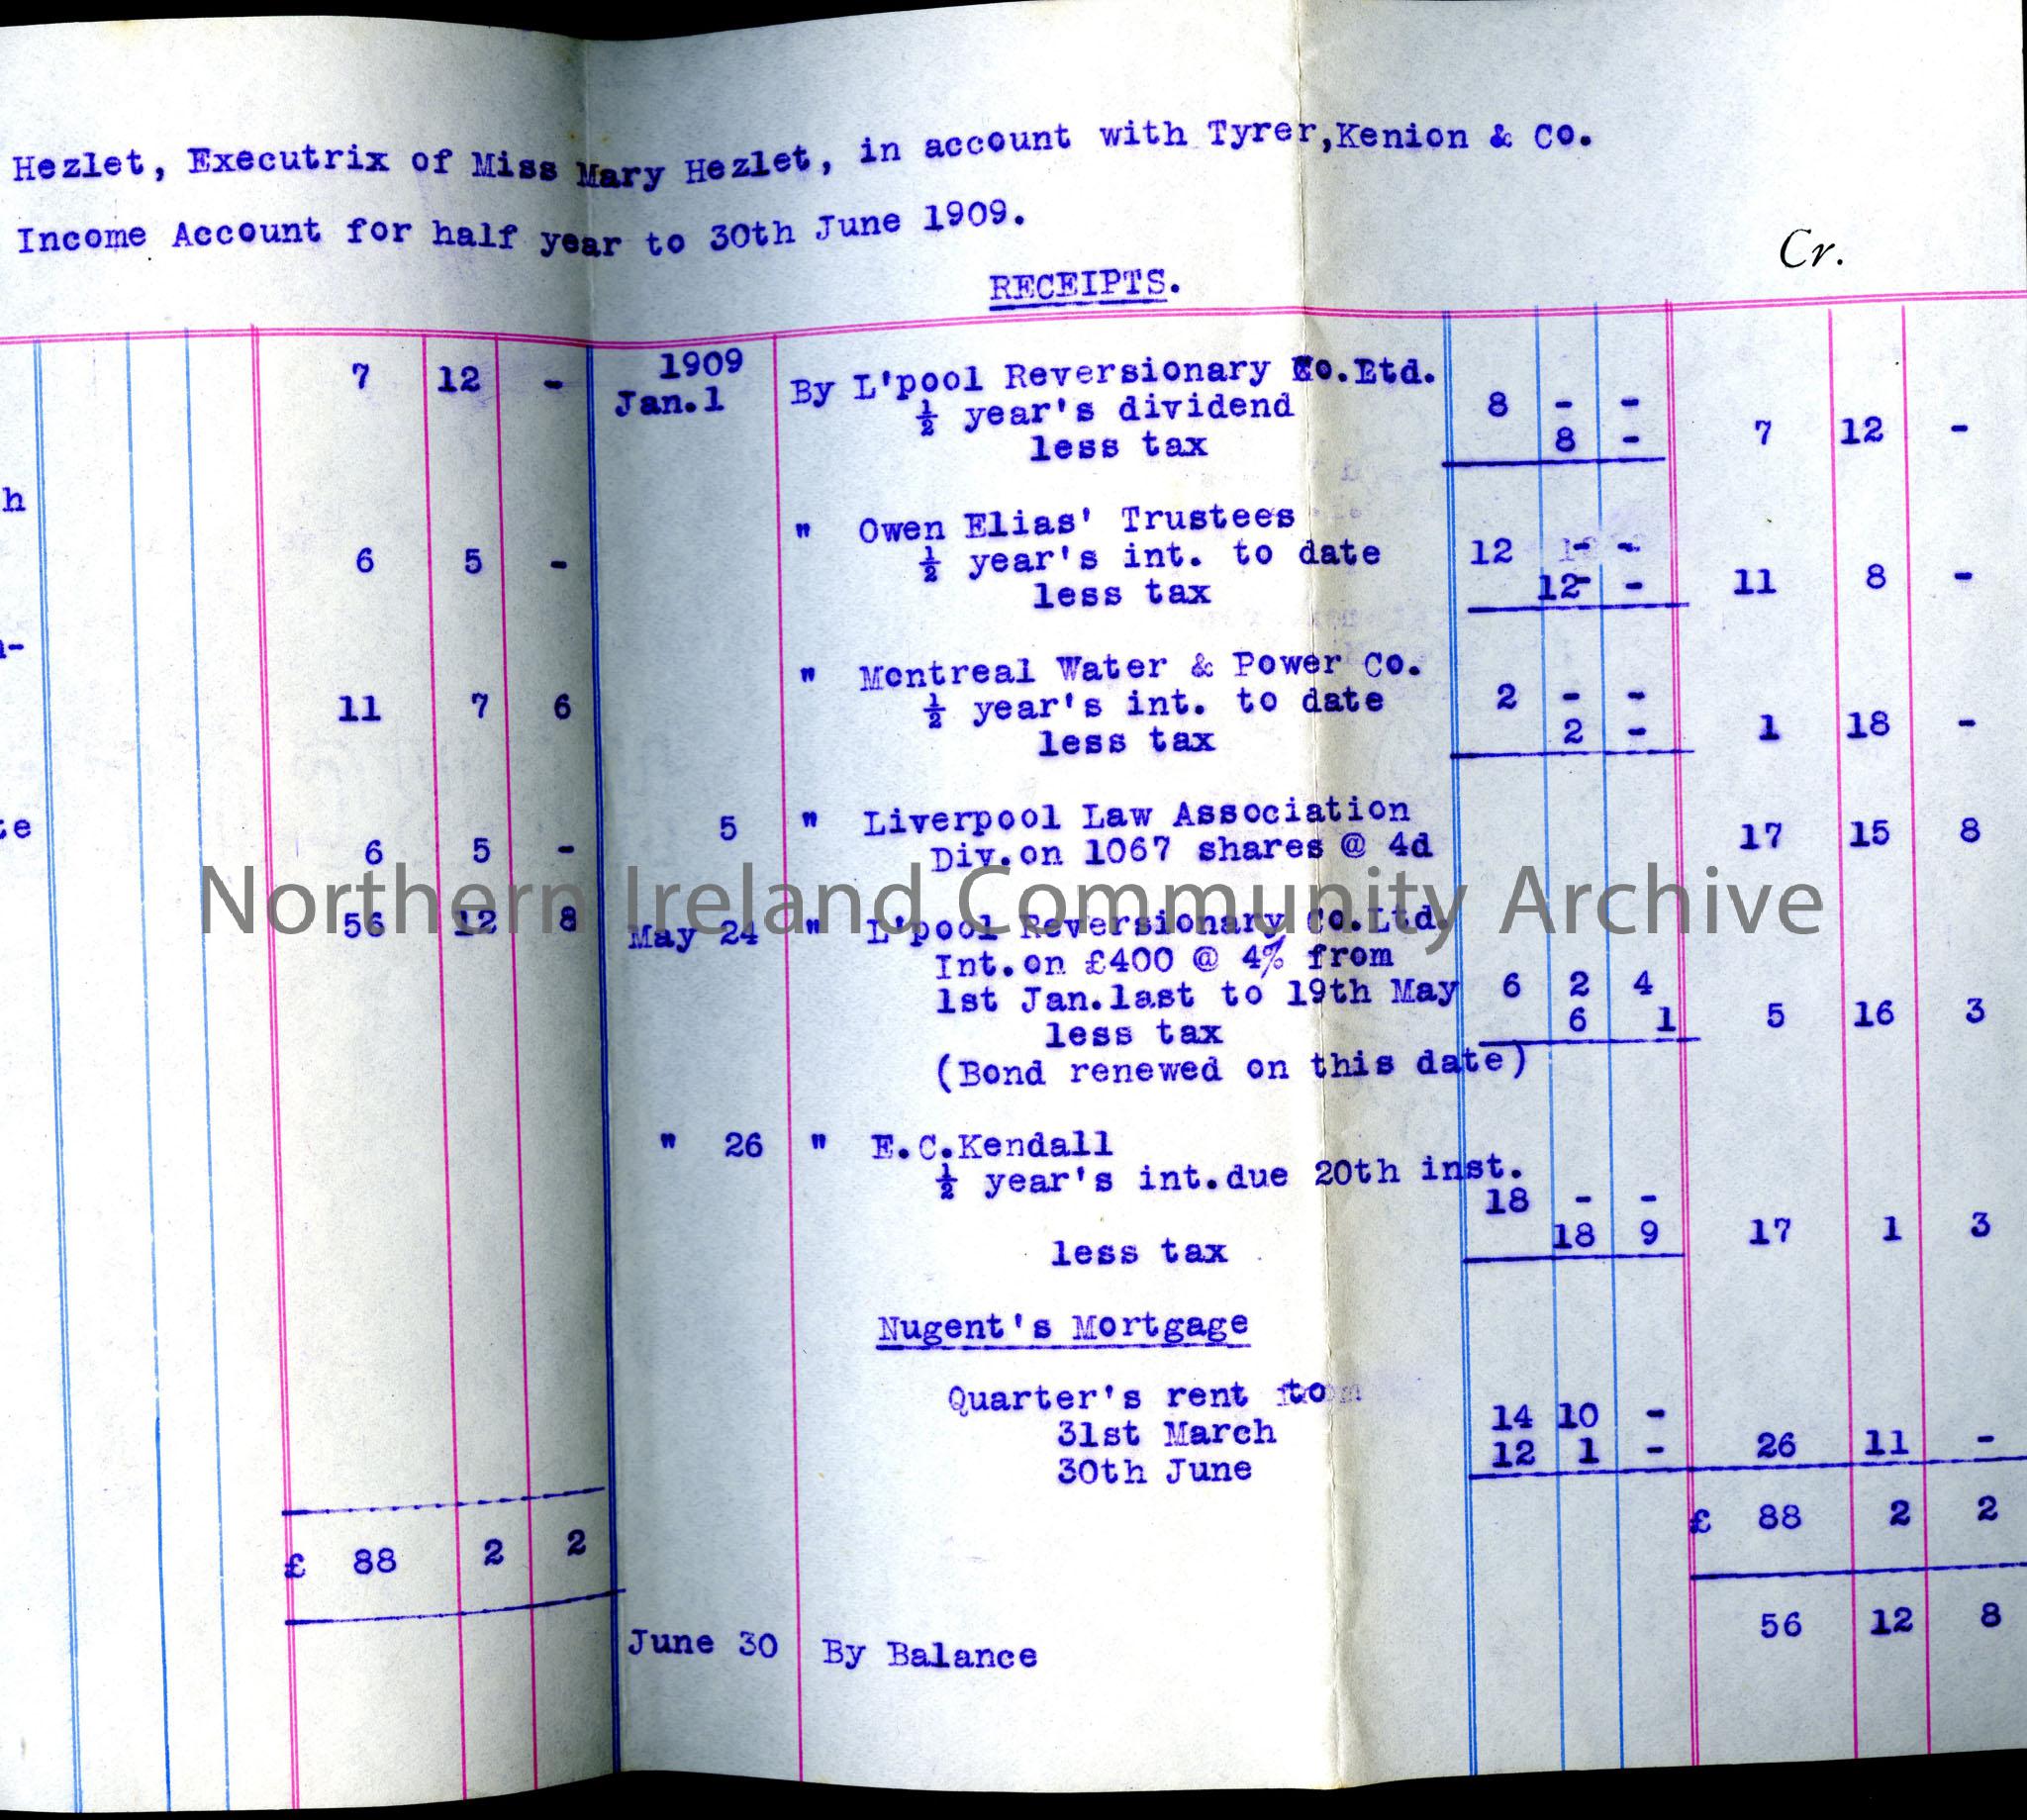 Hezlet, Executrix of Miss Mary Hezlet, in account with Tyrer,Kenion & Co.
Income Account for half year to 30th June 1909.
Cr.
RECEIPTS.
7 12 -
h
6 5 -
11 7 6
te
6 5 -
56 12 8
£ 88 2 2
1909
Jan.1 By L'pool Reversionary Co.Ltd.
½ year's dividend 8 - -
less tax 8 - 7 12 -
" Owen Elias' Trustees
½ year's int. to date 12 - -
less tax 12 - 11 8 -
" Montreal Water & Power Co.
½ year's int. to date 2 - -
less tax 2 - 1 18 -
5 " Liverpool Law Association
Div.on 1067 shares @ 4d 17 15 8
May 24 " L'pool Reversionary Co.Ltd.
Int.on £400 @ 4% from
1st Jan.last to 19th May 6 2 4
less tax 6 1 5 16 3
(Bond renewed on this date)
" 26 " E.C.Kendall
½ year's int.due 20th inst.
18 - -
less tax 18 9 17 1 3
Nugent's Mortgage
Quarter's rent to
31st March 14 10 -
30th June 12 1 - 26 11 -
£ 88 2 2
June 30 By Balance 56 12 8
Northern Ireland Community Archive